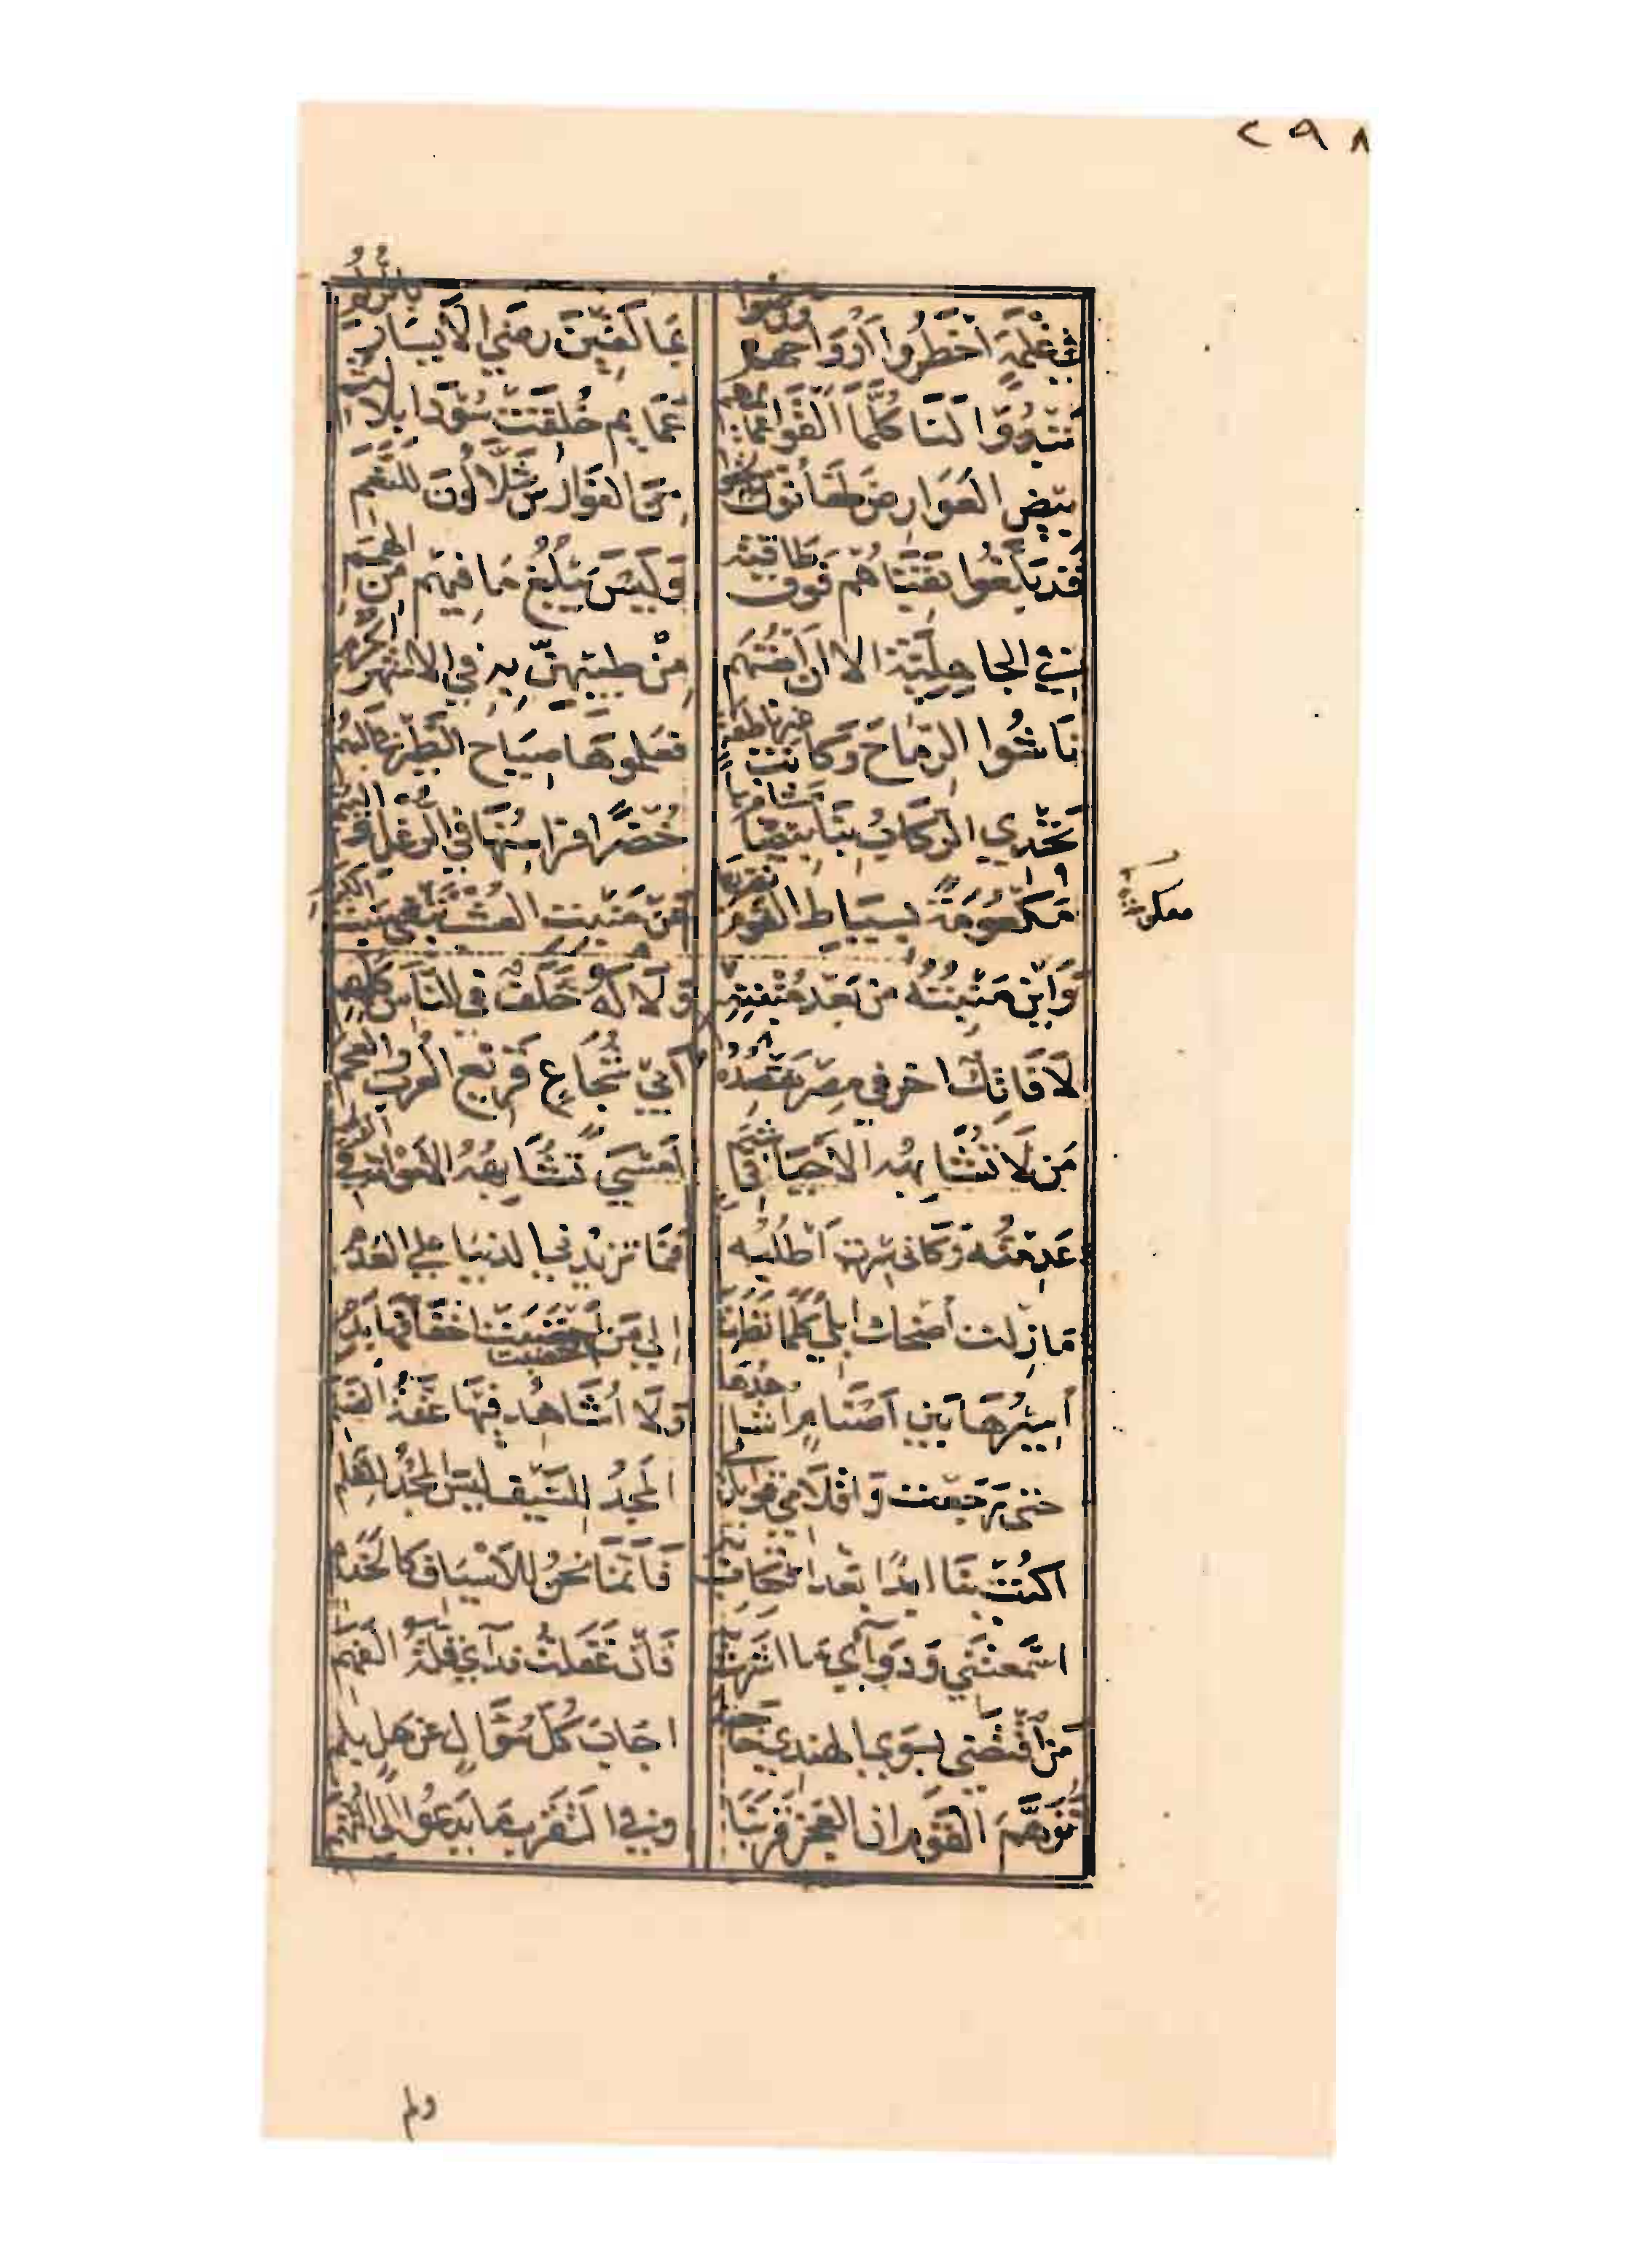 ٢٩٨
في غلمة اخطروا ارواحهم ورضوا بما لقين رضي الايسار بالزلم
تبدوا لنا كلما القوا عمائمهم عمايم خلقت سودا بلا لثم
بيض العوارض طعانون من لحقوا من الفوارس شلالون للنعم
قد بلغوا بقناهم فوق طاقته وليس يبلغ ما فيهم من الهمم
في الجاهلية الا ان انفسهم من طيبهن به في الاشهر الحرم
ناشوا الرماح وكانت غير ناطقة فعلموها صياح الطير في البهم
تخدي الركاب بنا بيضا مشافرها خضرا فراسنها في الرغل والينم
مكعومة بسياط القوم نضربها عن منبت العشب نبغي منبت الكرم
معكومة
واين منبته من بعد منبته
ولا له خلف في الناس كلهم
لا فاتك اخر في مصر نقصده ابي شجاع قريع العرب والعجم
من لا تشابهه الاحيا في شيم امسي تشابهه الاموات في الرمم
عدمته وكاني سرت اطلبه فما تزيدني الدنيا علي العدم
ما زلت اضحك ابلي كلما نظرت الي من اختضبت اخفافها بدم
اسيرها بين اصنام اشاهدها ولا اشاهد فيها عفة الصنم
حتي رجعت واقلامي قوايل لي المجد للسيف ليس المجد للقلم
اكتب بنا ابدا بعد الكتاب به فانما نحن للاسياف كالخدم
اسمعتني ودوآي ما اشرت به فان غفلت فدآي قلة الفهم
من اقتضي بسوي الهندي حاجته اجاب كل سؤال عن هل بلم
توهم القوم ان العجز قربنا وفي التقرب ما يدعو الي التهم
ولم